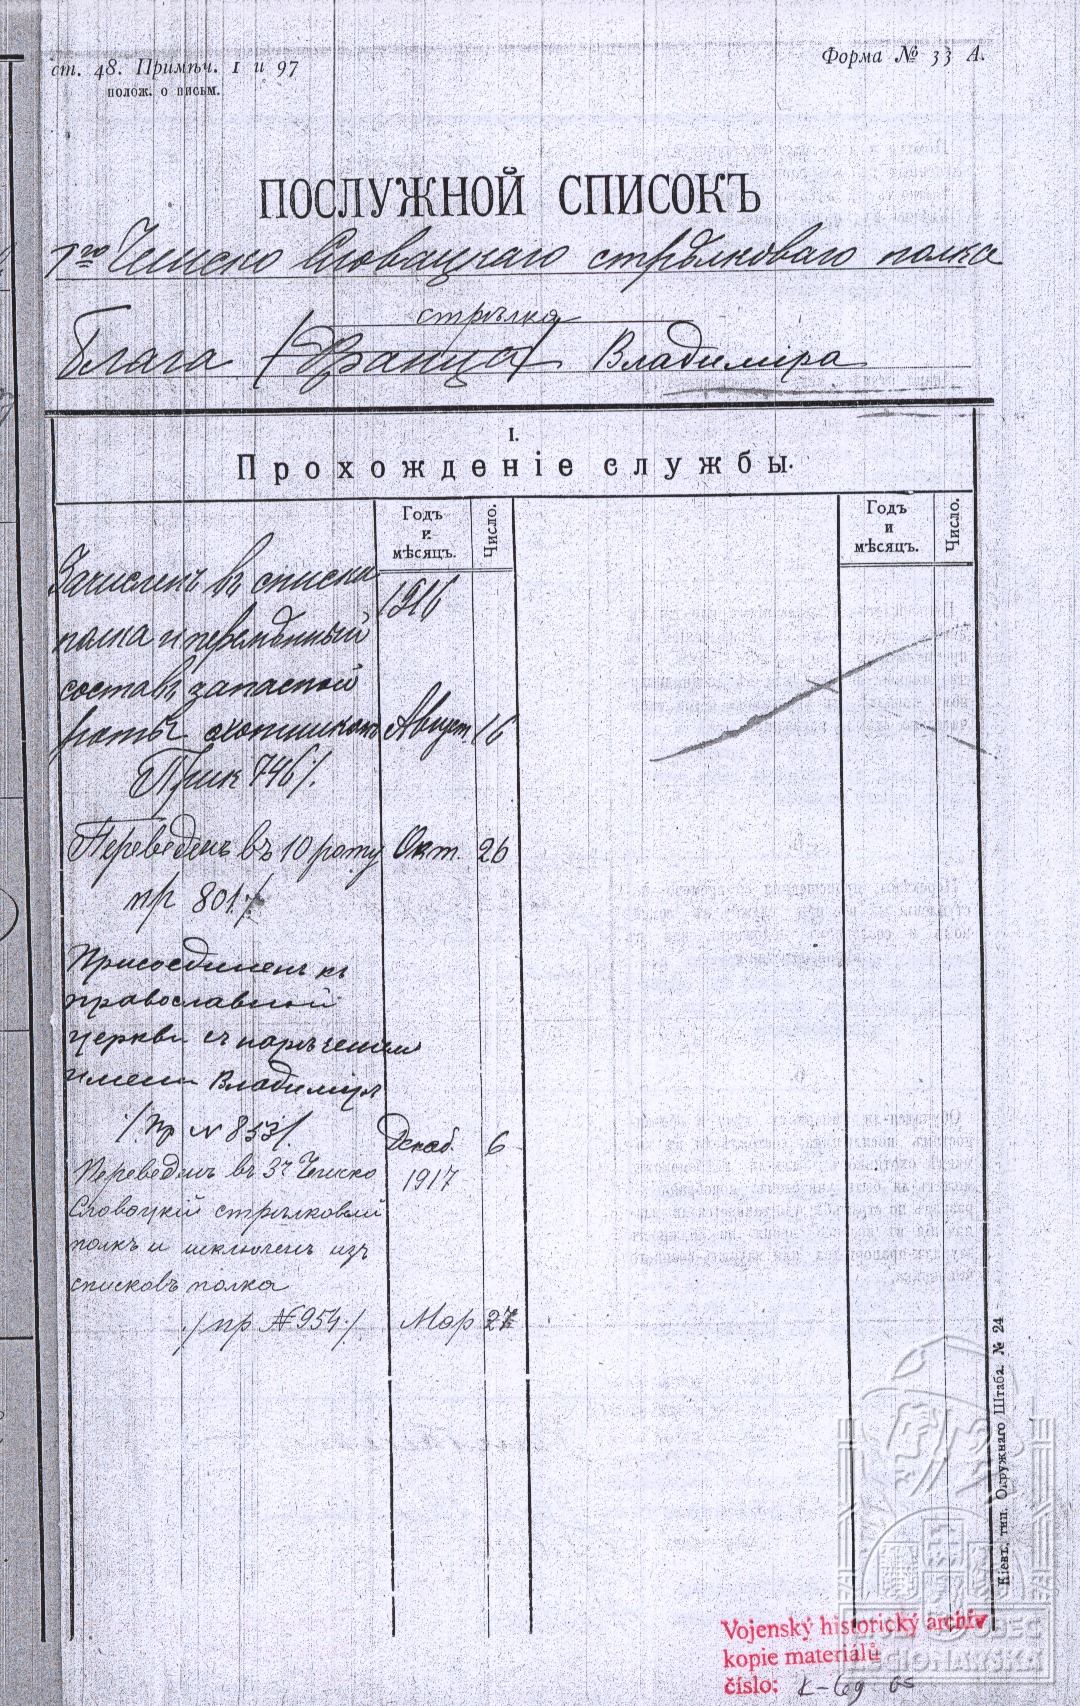 ст. 48. Примѣч. 1 и 97
полож. о письм.
Форма № 33 А.
ПОСЛУЖНОЙ СПИСОКЪ
1го Чешско Словацкаго стрѣлковаго полка
стрѣлка
Блага /Франца/ Владиміра
I.
Прохожденіе службы.
Годъ и мѣсяцъ.
Число.
Годъ и мѣсяцъ.
Число.
Зачисленъ въ списки 1916
полка и перемѣнный
составъ запасной
роты охотникомъ Август. 16
Прик 746 /.
Переведенъ въ 10 роту Окт. 26
пр 801 /.
Присоединенъ къ
православной
церкви съ нареченіем
имени Владиміръ
/Пр № 853/ Декаб. 6
Переведенъ въ 3й Чешско 1917
Словацкій стрѣлковый
полкъ и исключенъ изъ
списковъ полка
./пр № 954./ Мар 27
Кіевъ, тип. Окружнаго Штаба. № 24
Vojenský historický archiv
kopie materiálů
číslo:
OBEC
LEGIONÁŘSKÁ